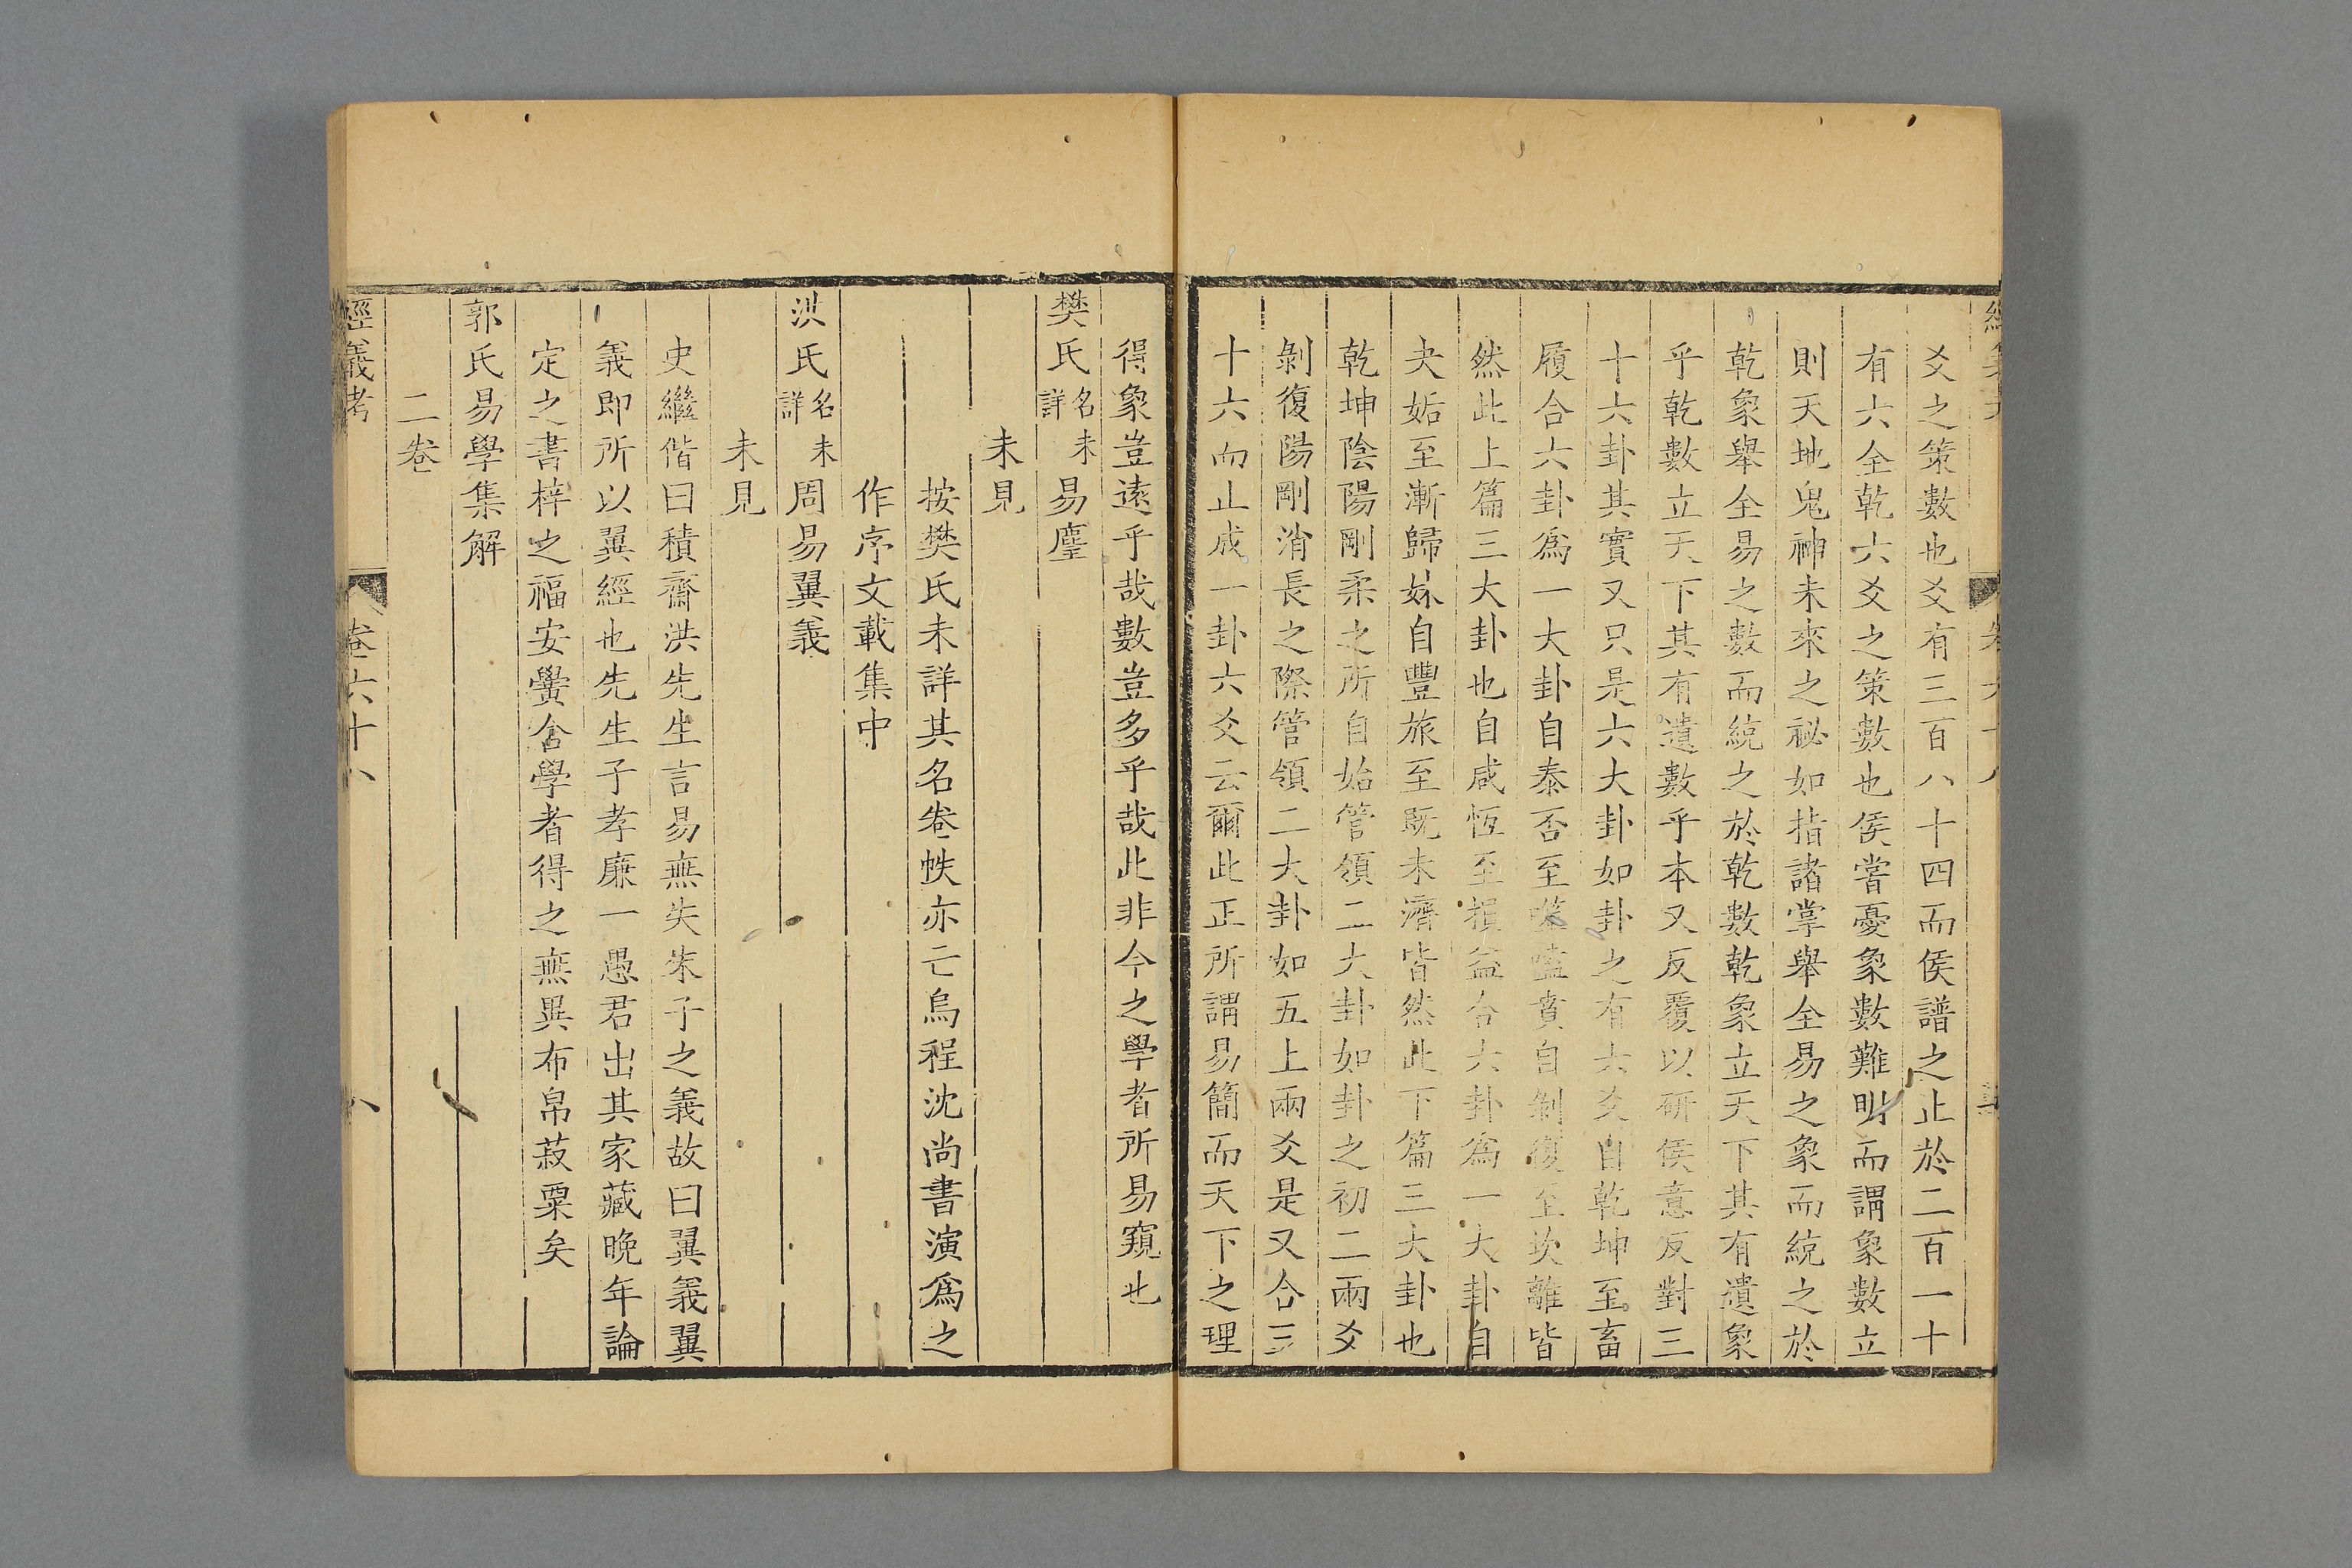 爻之策數也爻有三百八十四而侯譜之止於二百一十
有六全乾六爻之策數也侯嘗憂象數難明而謂象數立
則天地鬼神未來之祕如指諸掌舉全易之象而統之於
乾象舉全易之數而統之於乾數乾象立天下其有遺象
乎乾數立天下其有遺數乎本又反覆以研侯意反對三
十六卦其實又只是六大卦如卦之有六爻自乾坤至畜
履合六卦為一大卦自泰否至噬嗑賁自剝復至坎離皆
然此上篇三大卦也自咸恆至損益合六卦為一大卦自
夬姤至漸歸妹自豐旅至既未濟皆然此下篇三大卦也
乾坤陰陽剛柔之所自始管領二大卦如卦之初二兩爻
剝復陽剛消長之際管領二大卦如五上兩爻是又合三
十六而止成一卦六爻云爾此正所謂易簡而天下之理
得象豈遠乎哉數豈多乎哉此非今之學者所易窺也
樊氏名未詳易麈
未見
按樊氏未詳其名卷帙亦亡烏程沈尚書演為之
作序文載集中
洪氏名未詳周易翼義
未見
史繼偕曰積齋洪先生言易無失朱子之義故曰翼義翼
義即所以翼經也先生子孝廉一愚君出其家藏晚年論
定之書梓之福安黌舍學者得之無異布帛菽粟矣
郭氏易學集解
二卷
經義考 卷六十八 八